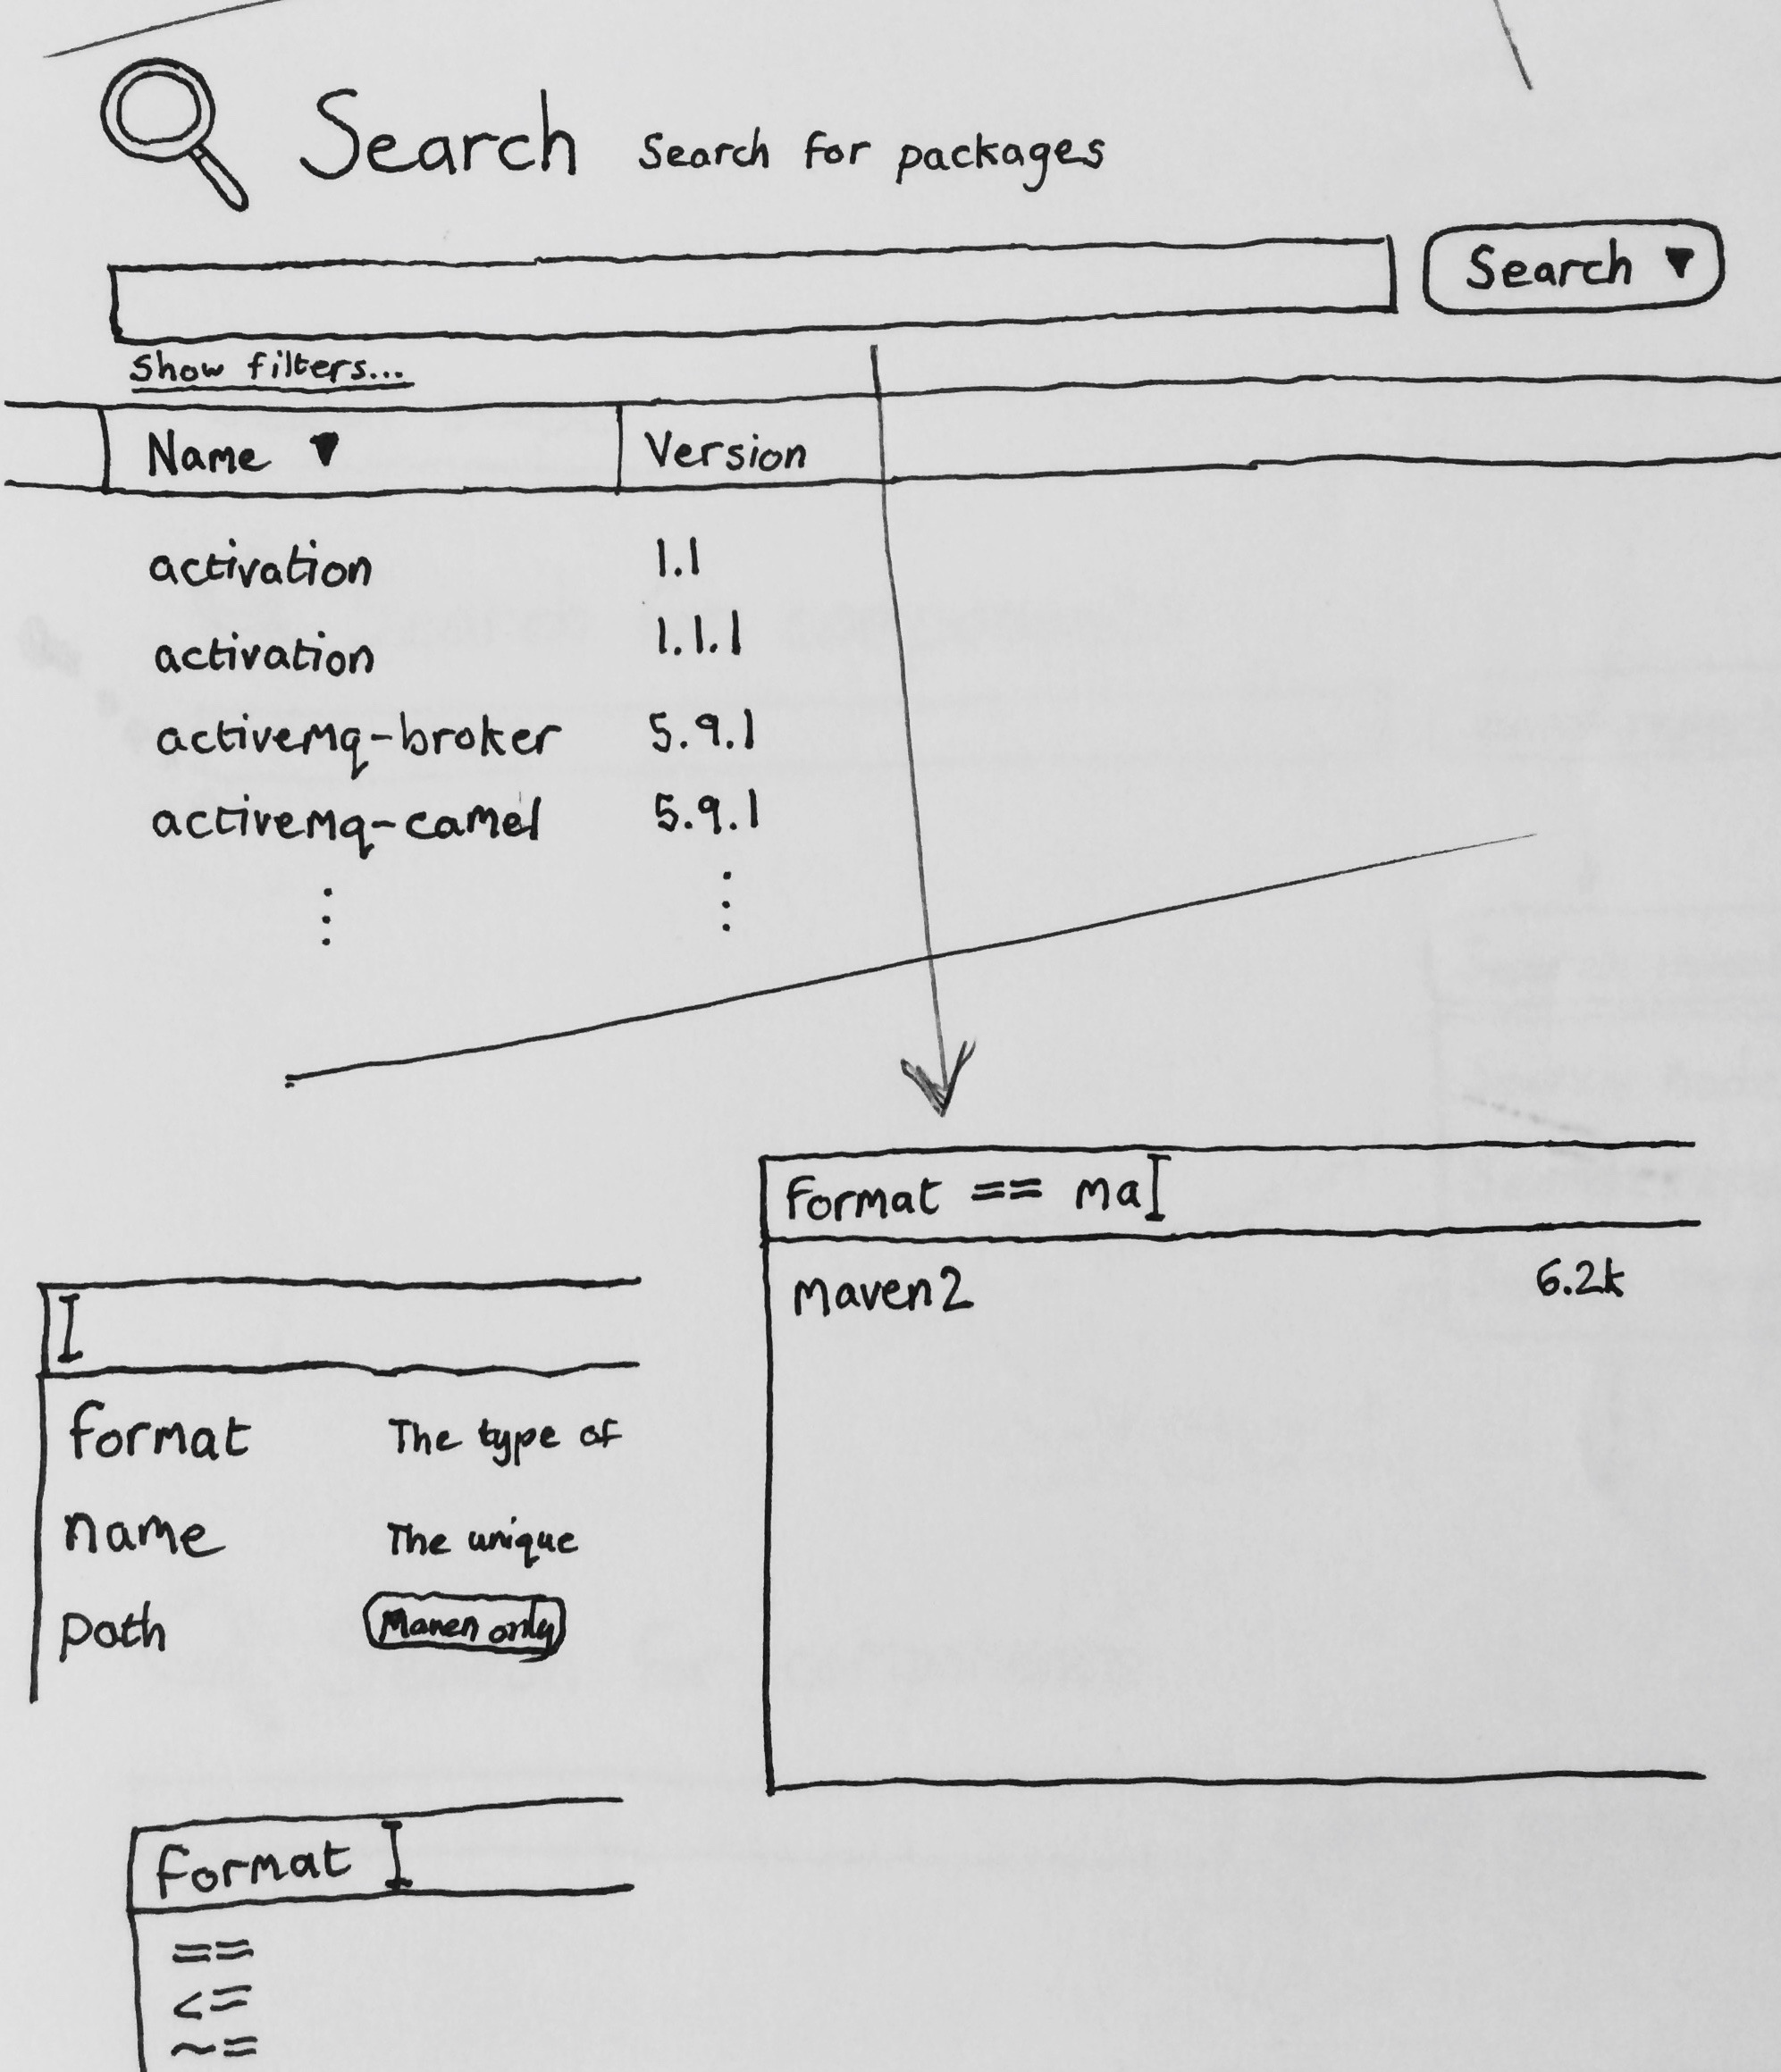 Search Search for packages
Search ▼
Show filters...
Name ▼ Version
activation 1.1
activation 1.1.1
activemq-broker 5.9.1
activemq-camel 5.9.1
⋮ ⋮
format == ma
maven2 6.2k
format The type of
name The unique
path Maven only
format
==
<=
~=